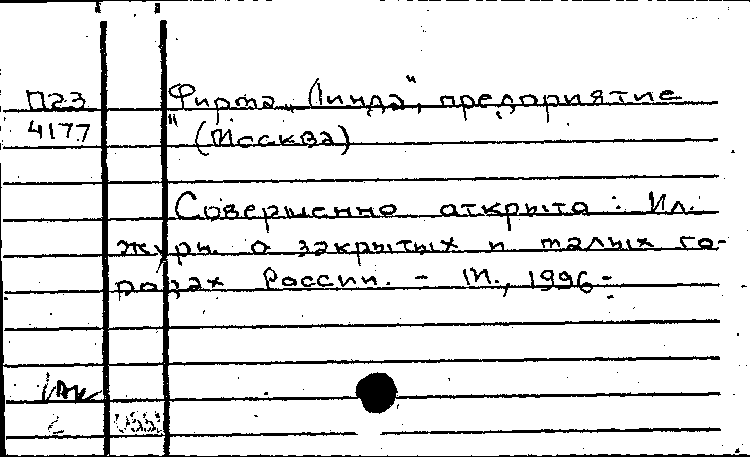 П23
4177
Фирма „Линда", предприятие
(Москва)
Совершенно открыто : Ил.
журн. о закрытых и малых го-
родах России. – М., 1996-